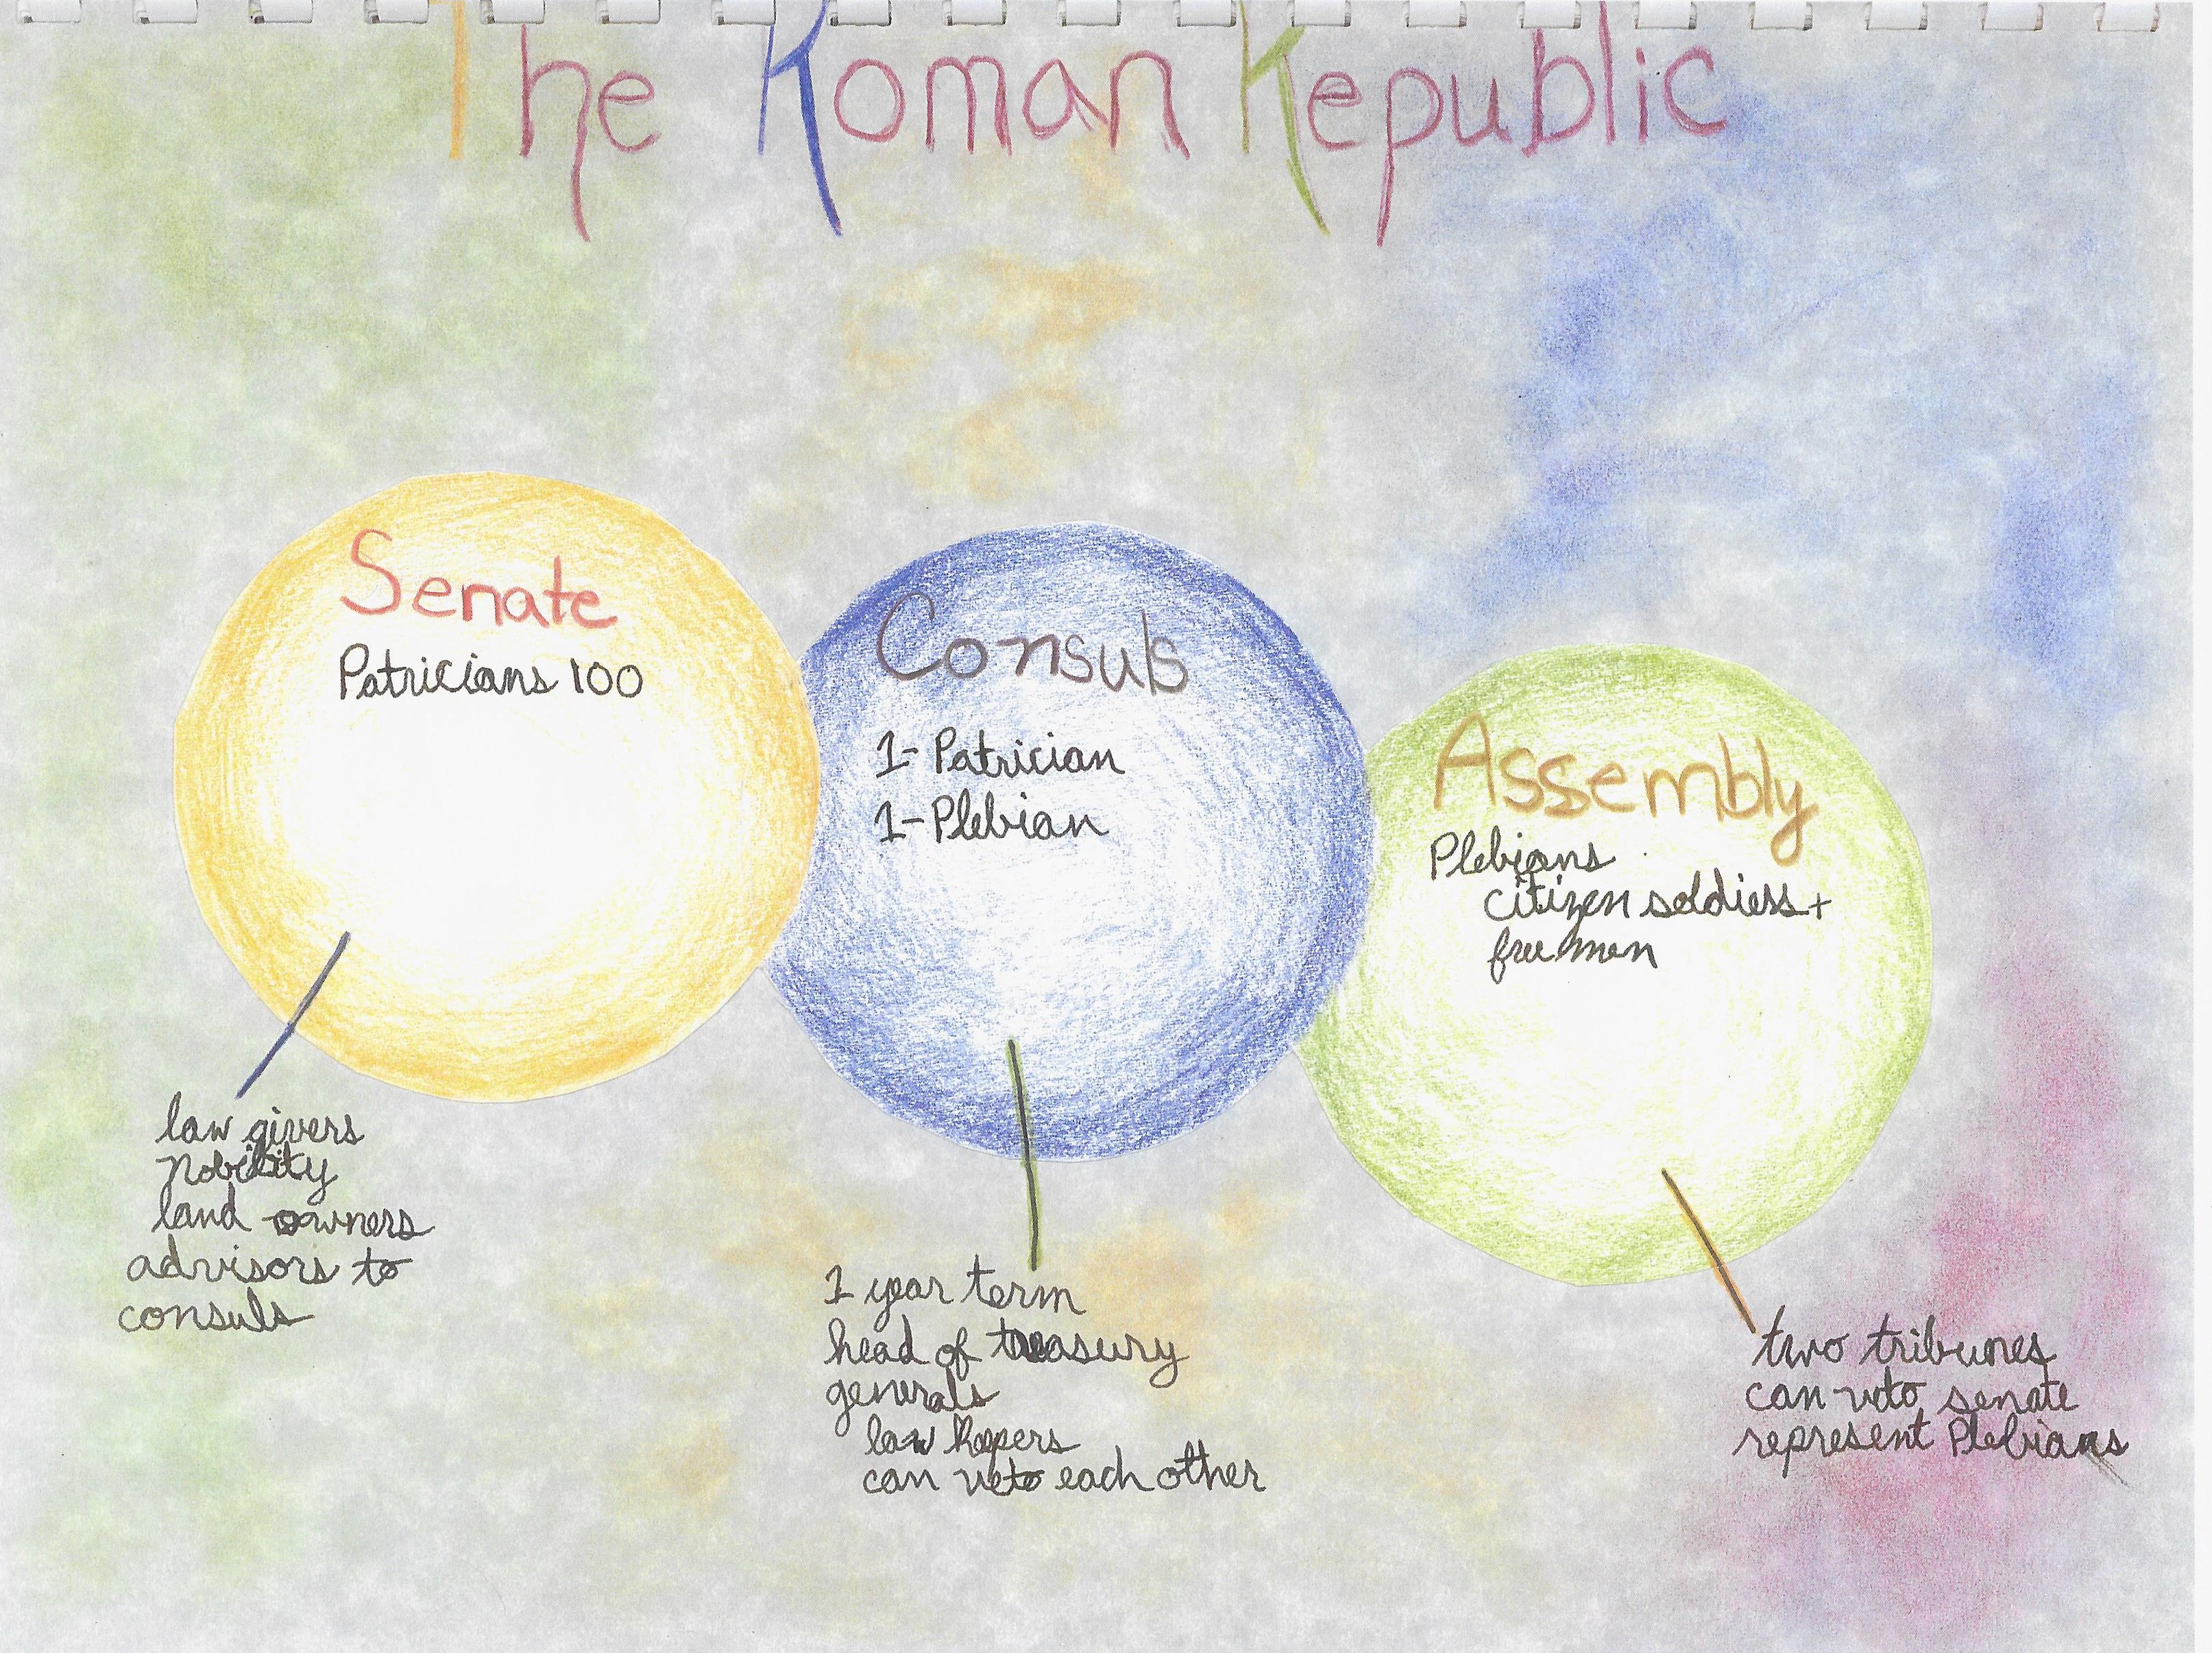 The Roman Republic
Senate
Patricians 100
law givers
nobility
land owners
advisors to
consuls
Consuls
1- Patrician
1- Plebian
1 year term
head of treasury
generals
law keepers
can veto each other
Assembly
Plebians
citizen soldiers +
free men
two tribunes
can veto senate
represent Plebians